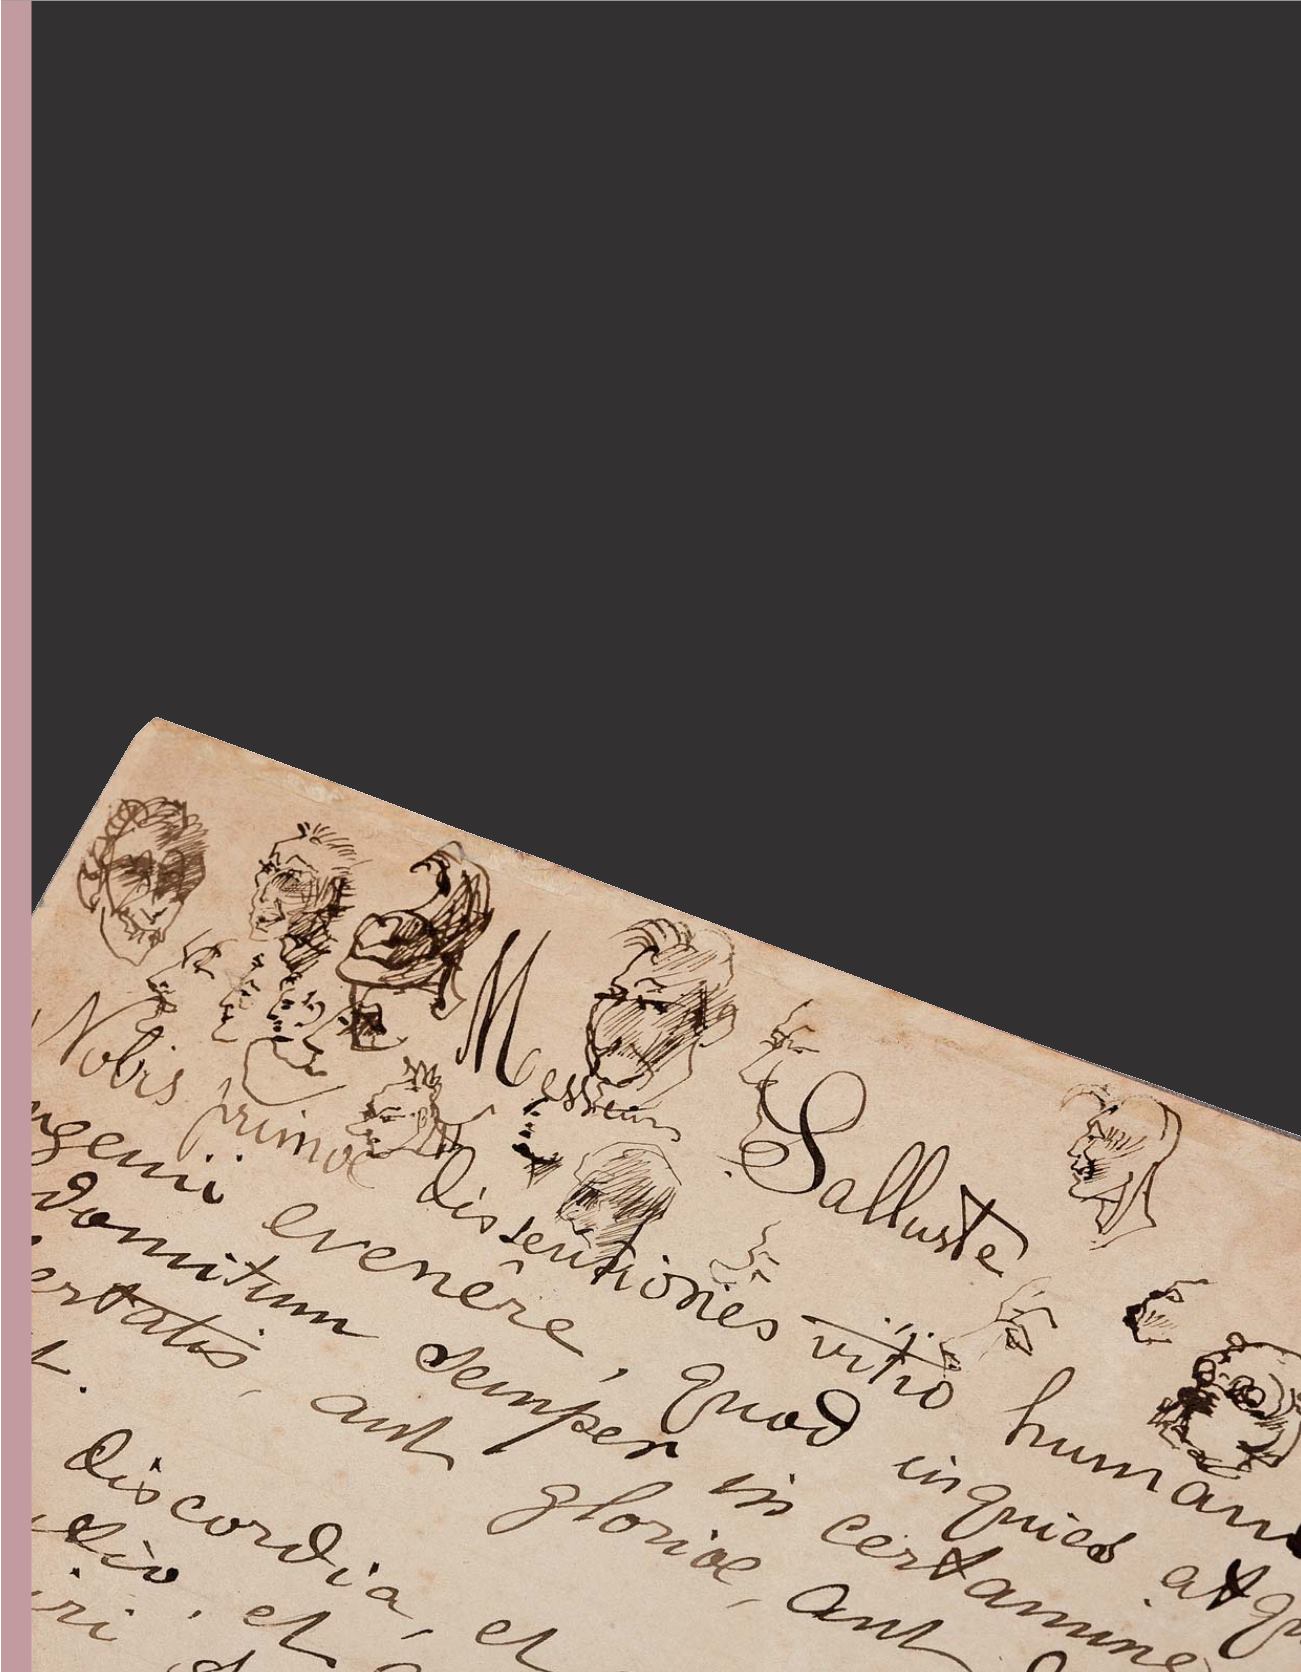 Messieur Salluste
Nobis primæ dissentiones vitio human
ngenii evenêre, quod inquies atqu
domitum semper in certamine
ertatis, aut gloriæ, aut
t.
Discordia, et
et
iri